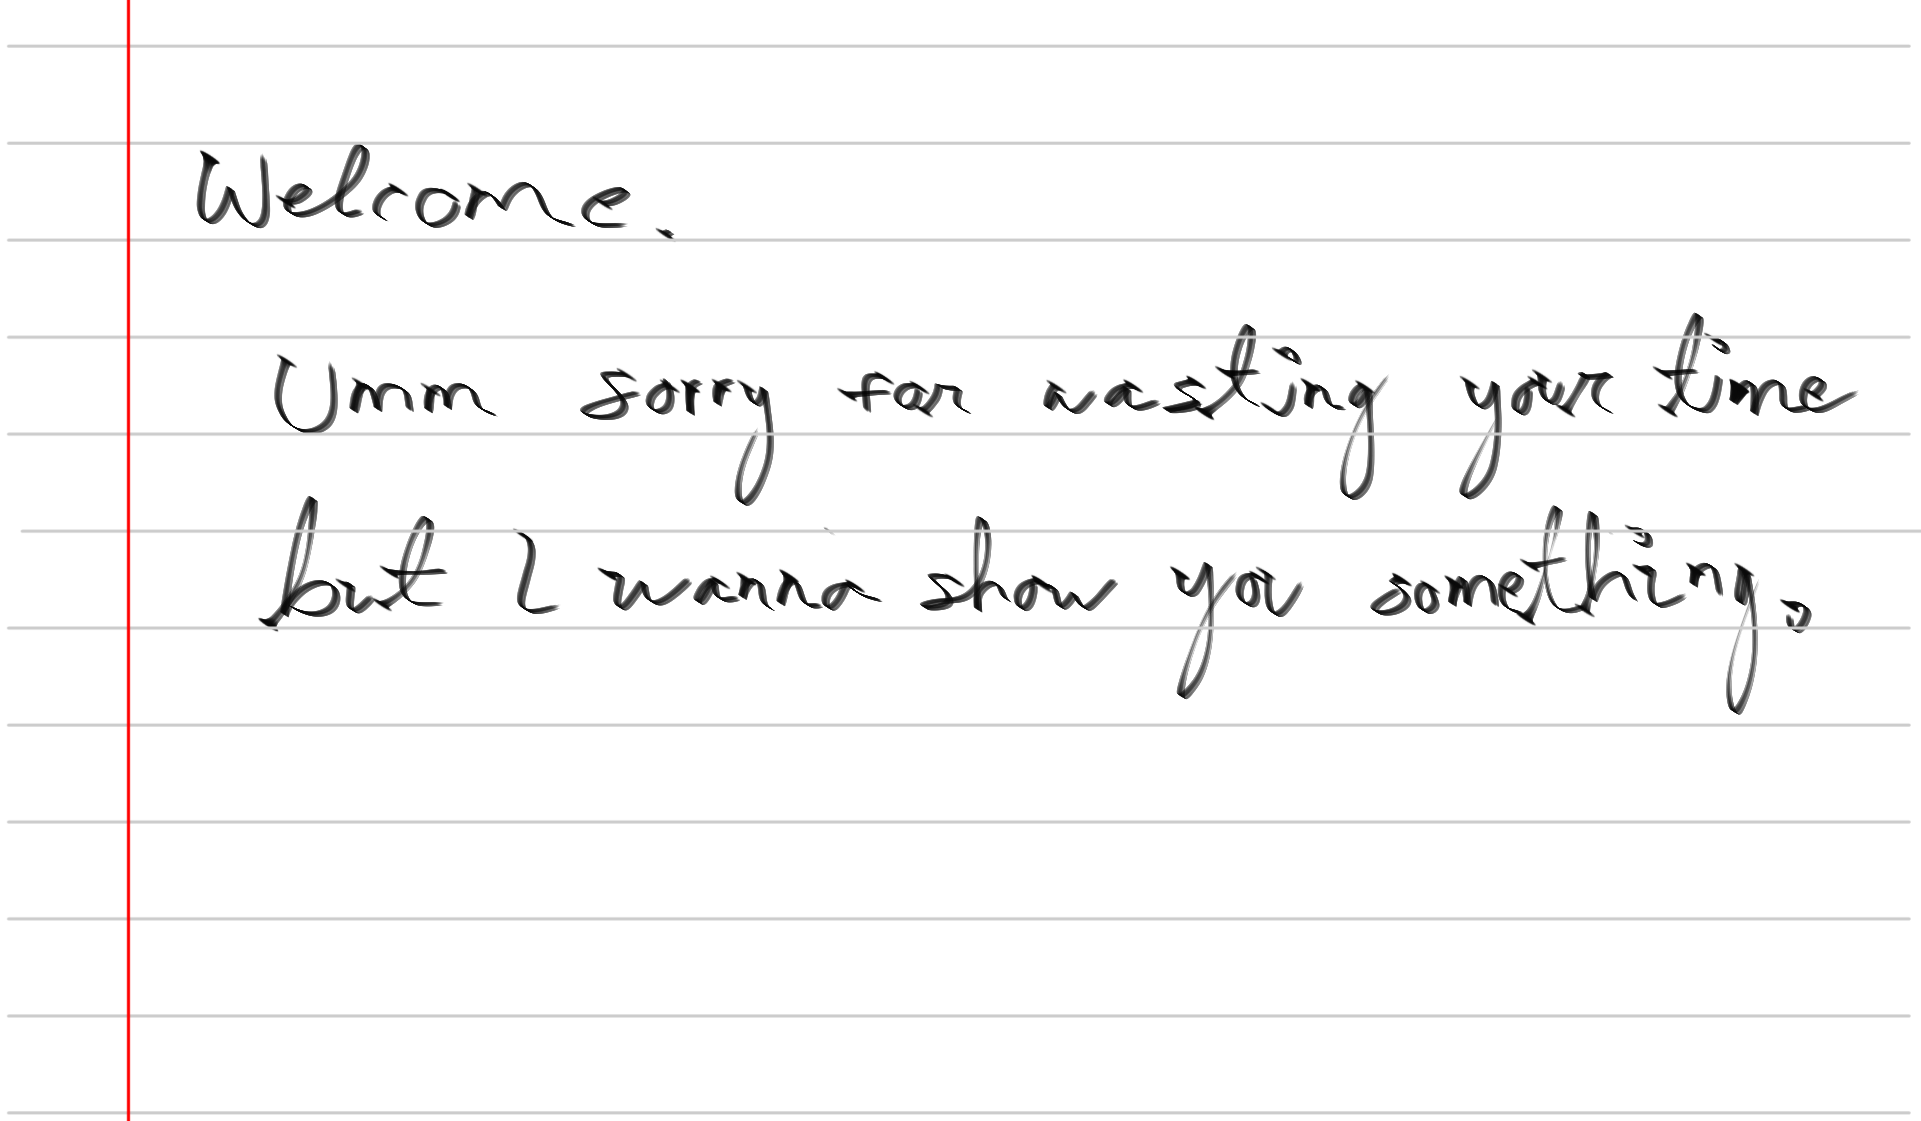 Welcome.
Umm sorry for wasting your time
but I wanna show you something.